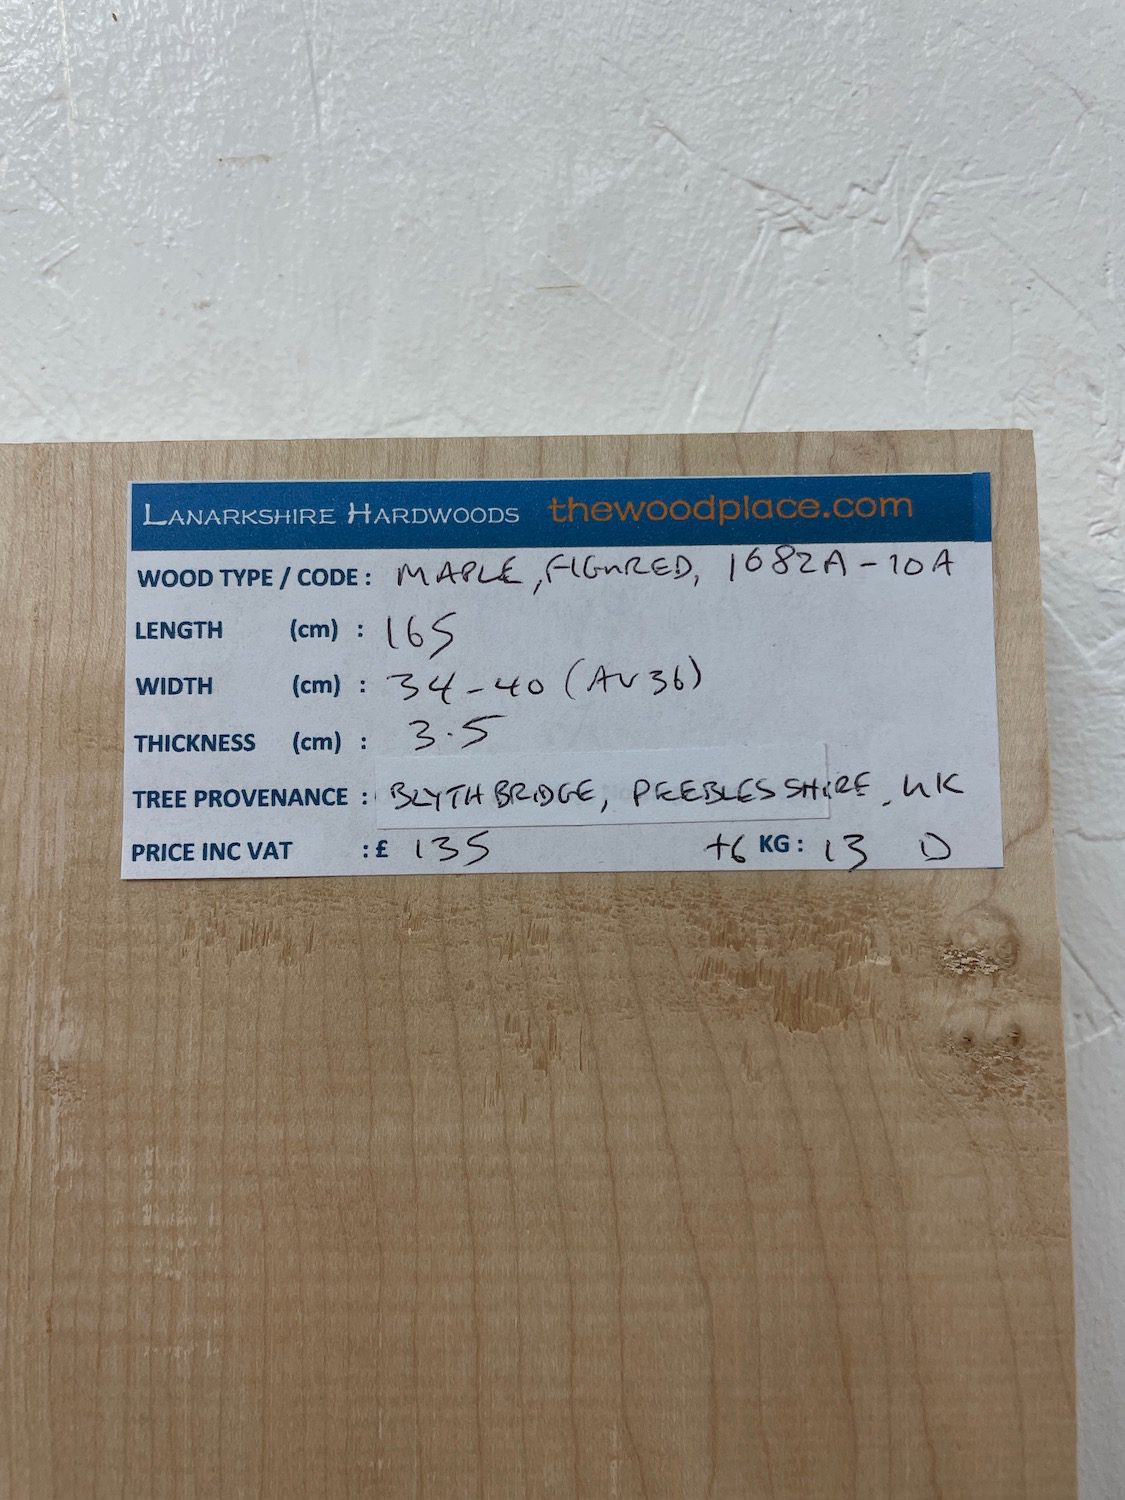 Lanarkshire Hardwoods thewoodplace.com
WOOD TYPE / CODE : MAPLE, FIGURED, 1682A-10A
LENGTH (cm) : 165
WIDTH (cm) : 34-40 (AV 36)
THICKNESS (cm) : 3.5
TREE PROVENANCE : BLYTH BRIDGE, PEEBLESSHIRE, UK
PRICE INC VAT : £ 135 +6 KG : 13 D